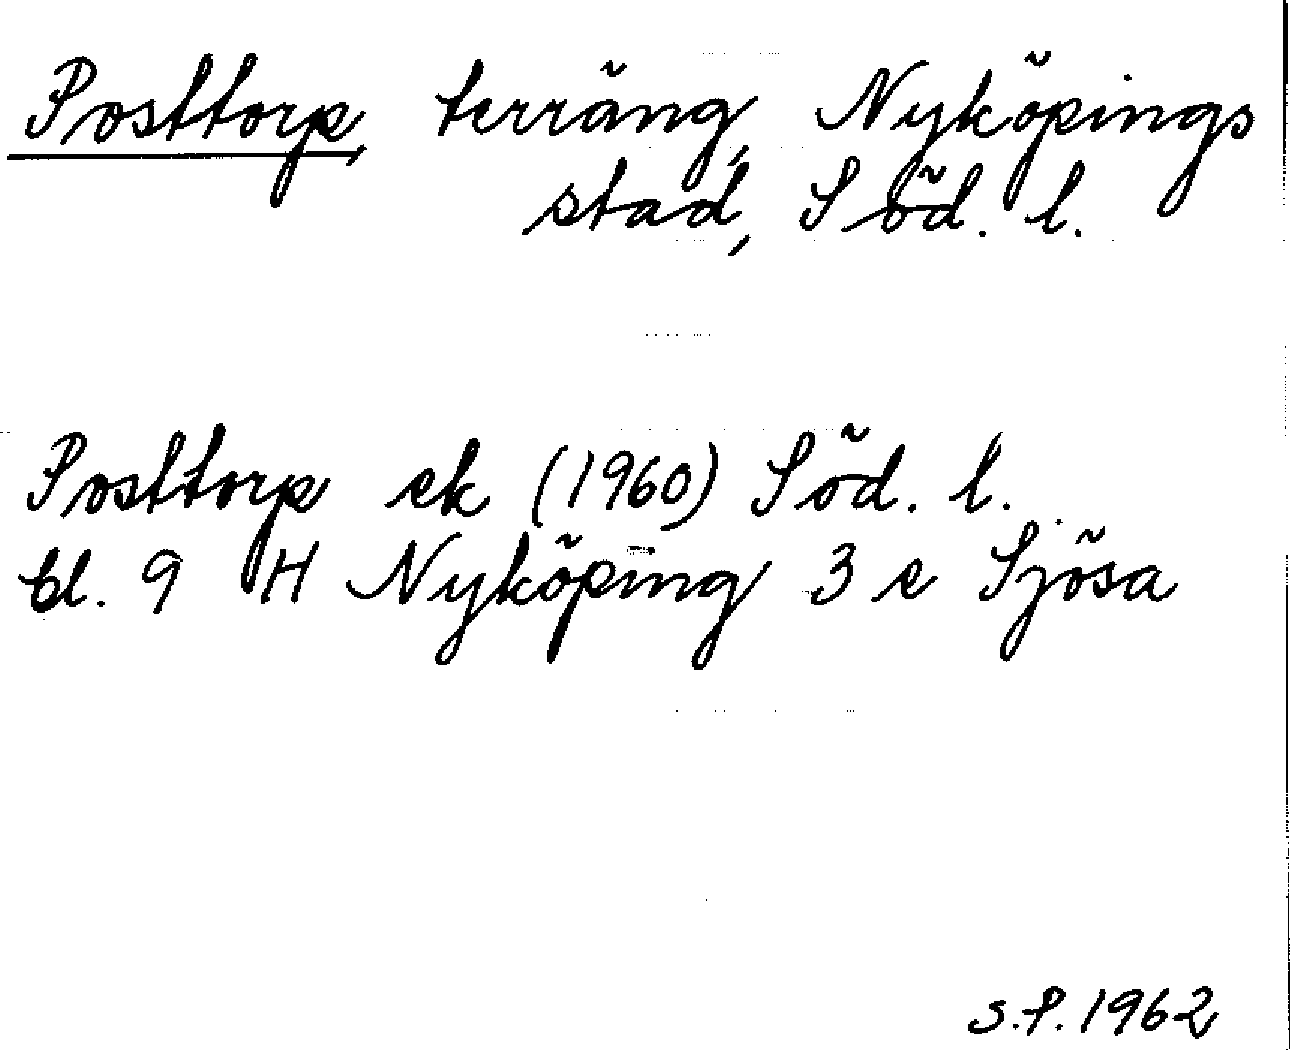 Posttorp, terräng, Nyköpings
stad, Söd. l.
Posttorp ek (1960) Söd. l.
bl. 9 H Nyköping 3 e Sjösa
S.P. 1962